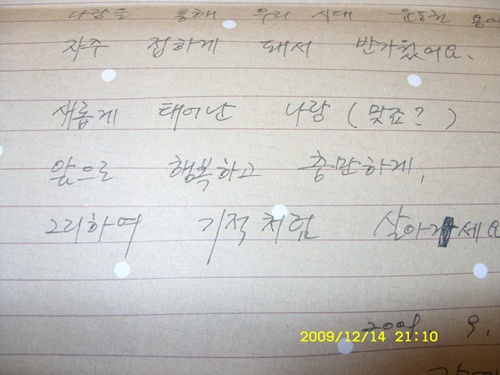 나랑을 통해 우리 시대
자주 접하게 돼서 반가웠어요.
새롭게 태어난 나랑 (맞죠?)
앞으로 행복하고 충만하게,
그리하여 기적처럼 살아가세요
2009 9.
2009/12/14 21:10